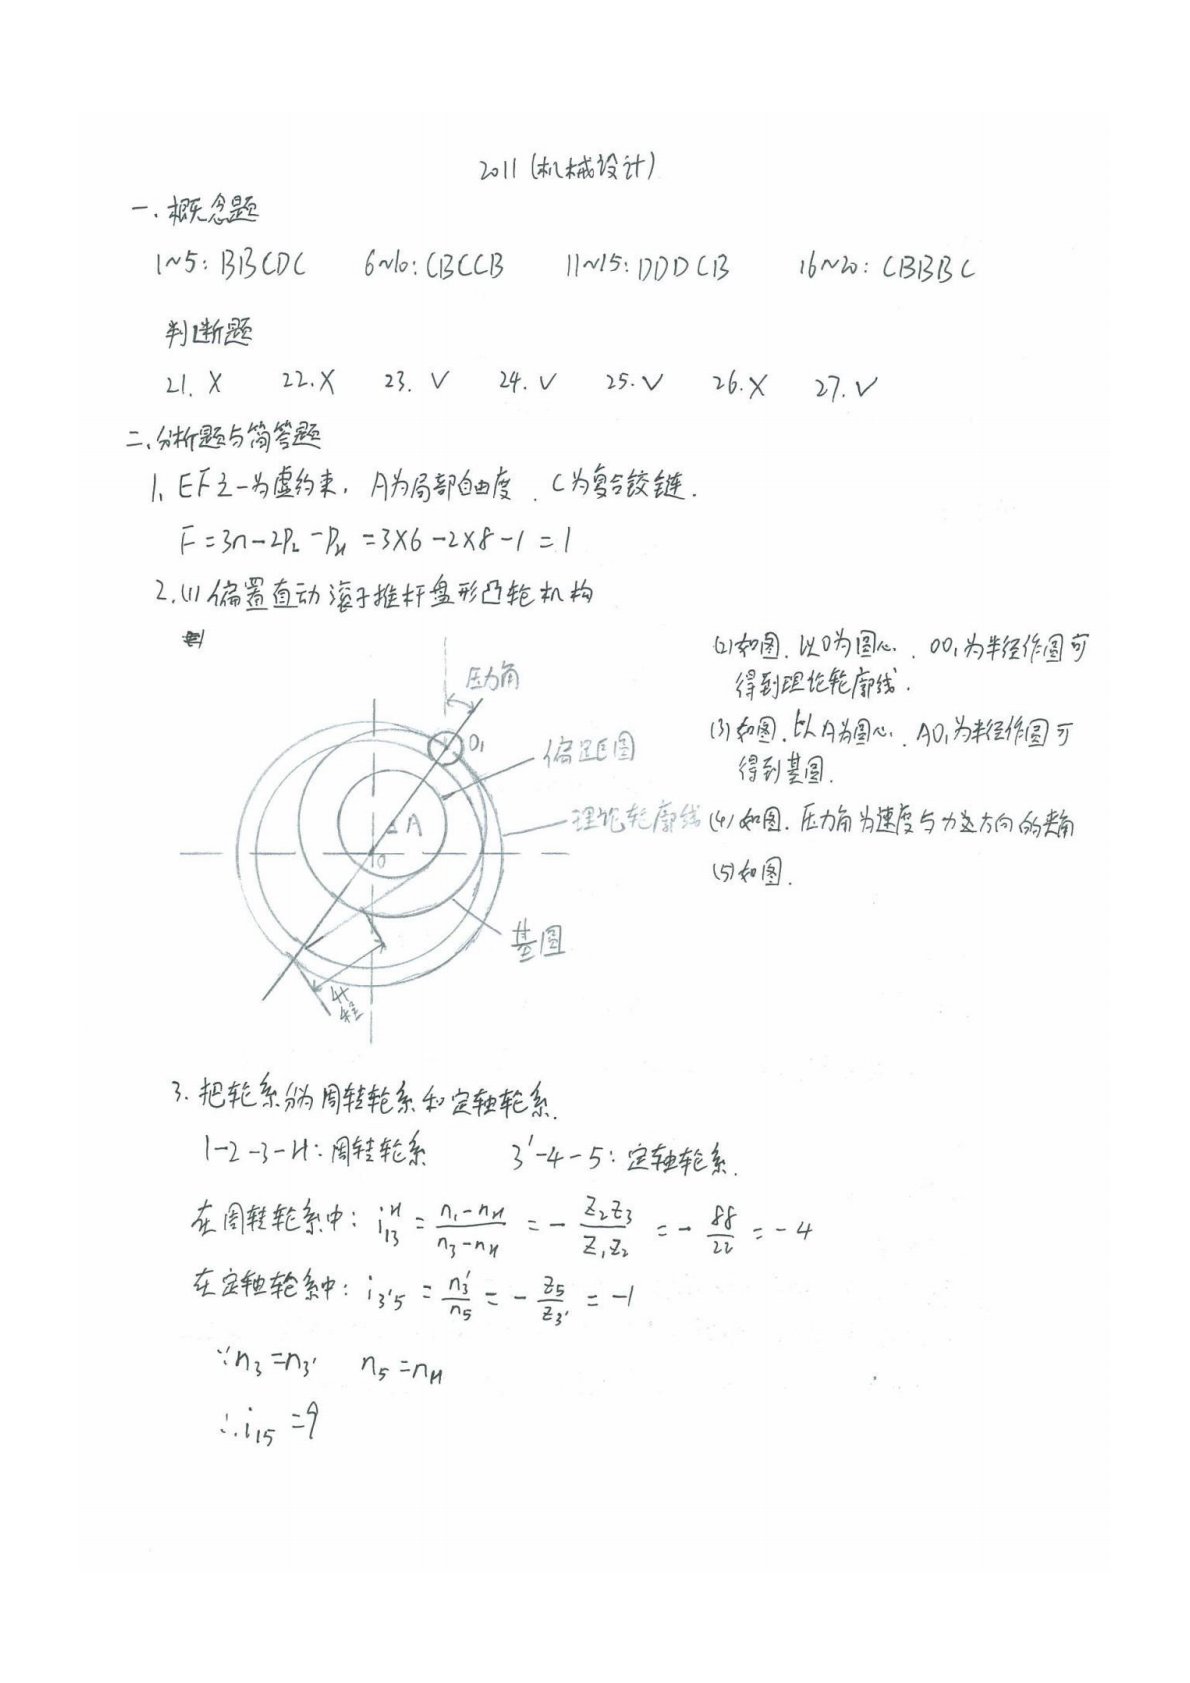 2011 (机械设计)
一、概念题
1~5: BBCDC 6~10: CBCCB 11~15: DDDCB 16~20: CBBBC
判断题
21. X 22. X 23. √ 24. √ 25. √ 26. X 27. √
二、分析题与简答题
1、EF之一为虚约束, A为局部自由度. C为复合铰链.
F = 3n - 2P_L - P_H = 3×6 - 2×8 - 1 = 1
2. (1) 偏置直动滚子推杆盘形凸轮机构
(2)如图. 以O为圆心. OO₁为半径作圆可
得到理论轮廓线.
(3)如图. 以A为圆心. AO₁为半径作圆可
得到基圆.
(4)如图. 压力角为速度与力方向的夹角
(5)如图.
压力角
O₁
偏距圆
理论轮廓线
A
O
基圆
升程
3. 把轮系分为周转轮系和定轴轮系.
1-2-3-H: 周转轮系 3'-4-5: 定轴轮系.
在周转轮系中: i₁₃ᴴ = (n₁-n_H)/(n₃-n_H) = - Z₂Z₃/Z₁Z₂ = - 88/22 = -4
在定轴轮系中: i₃'₅ = n₃'/n₅ = - Z₅/Z₃' = -1
∵n₃=n₃' n₅=n_H
∴i₁₅ = 9